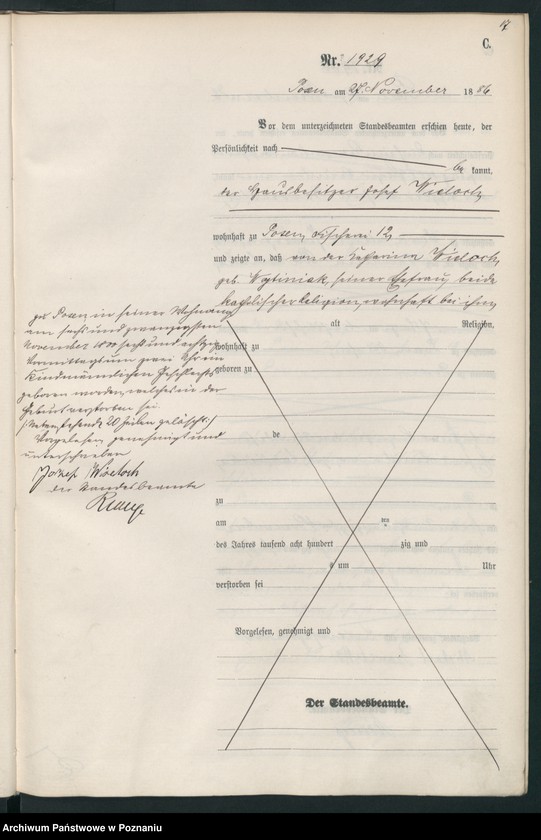 17
C.
Nr. 1929
Posen am 27. November 1886
Vor dem unterzeichneten Standesbeamten erschien heute, der
Persönlichkeit nach
be kannt,
der Hausbesitzer Josef Wieloch
wohnhaft zu Posen, Fischerei 12,
und zeigte an, daß von der Katharina Wieloch
geb. seiner Ehefrau, beide
katholischer Religion, wohnhaft bei ihm
alt Religion,
wohnhaft zu
geboren zu
de
zu
am ten
des Jahres tausend acht hundert zig und
um Uhr
verstorben sei
Vorgelesen, genehmigt und
Der Standesbeamte.
zu Posen in seiner Wohnung
am sechs und zwanzigsten
November 1800 sechs und achtzig
Vormittags um zwei Uhr ein
Kind männlichen Geschlechts
geboren worden, welches in der
Geburt verstorben sei
20 Zeilen gelöscht./
Vorgelesen, genehmigt und
unterschrieben
Josef Wieloch
der Standesbeamte
Archiwum Państwowe w Poznaniu